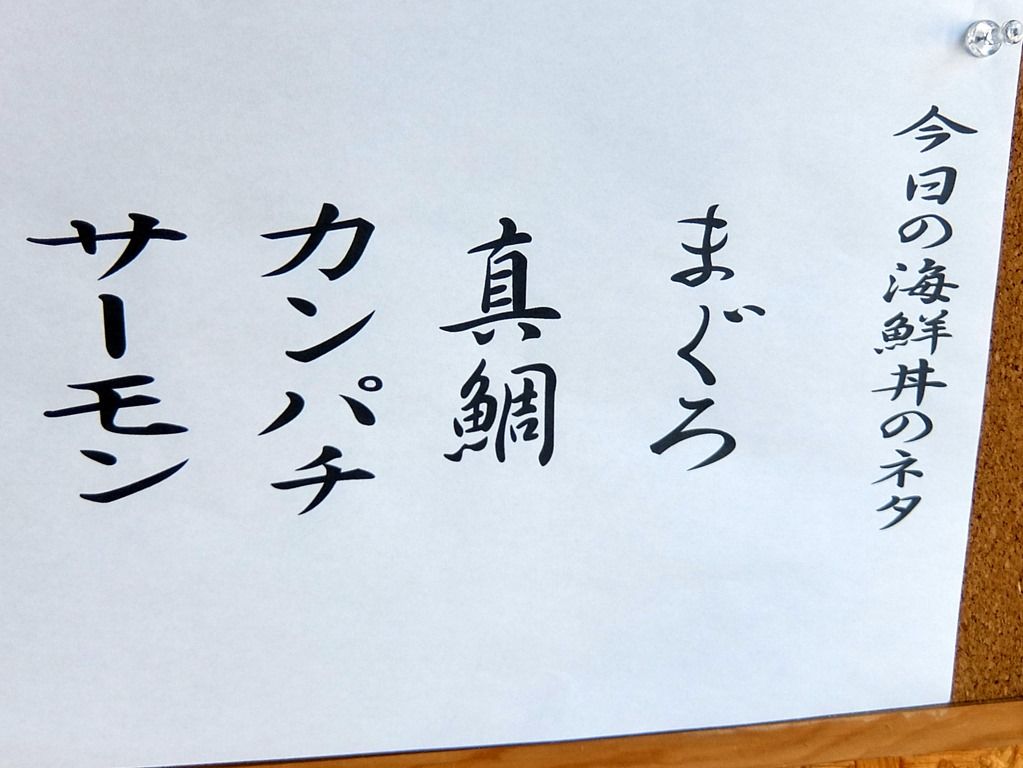 今日の海鮮丼のネタ
まぐろ
真鯛
カンパチ
サーモン